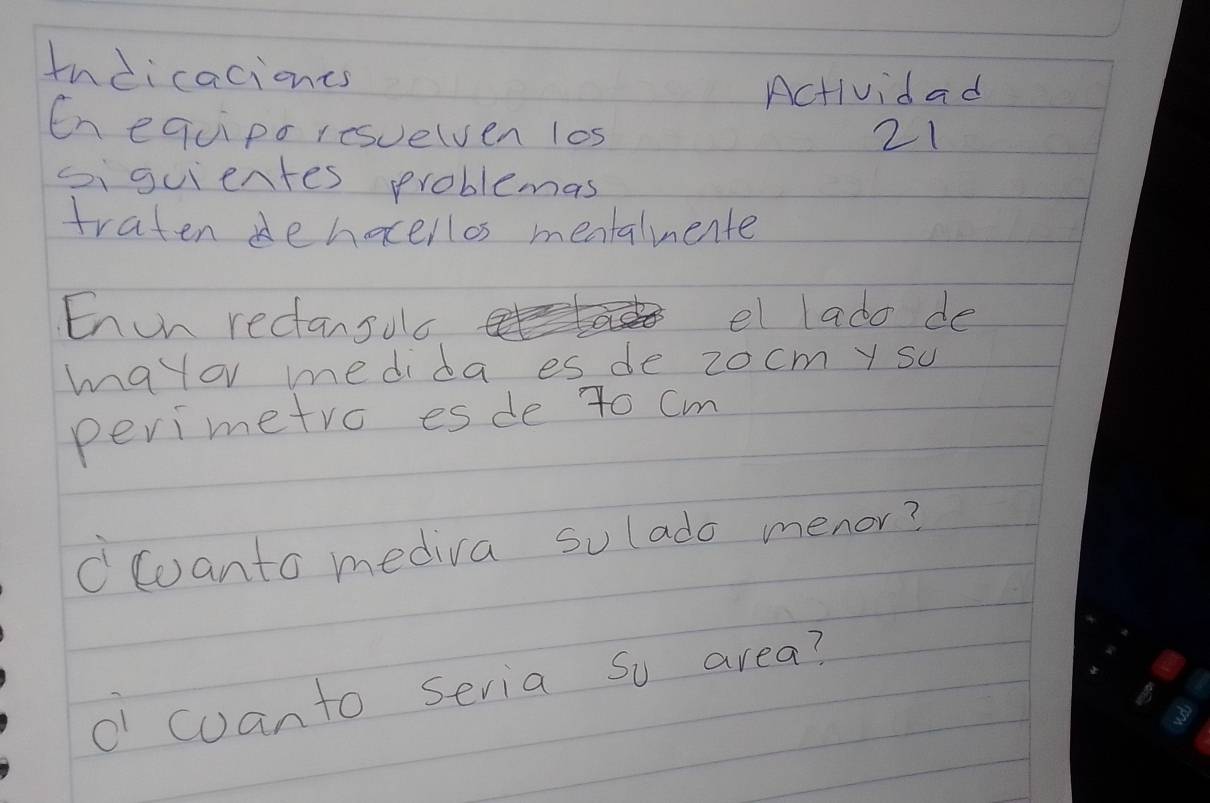 Indicaciones
Actividad
21
En equipo resuelven los
siguientes problemas
traten de hacerlos mentalmente
En un rectangulo el lado de
mayor medida es de 20 cm y su
perimetro es de 70 cm
¿Cuanto medira su lado menor?
¿cuanto seria su area?